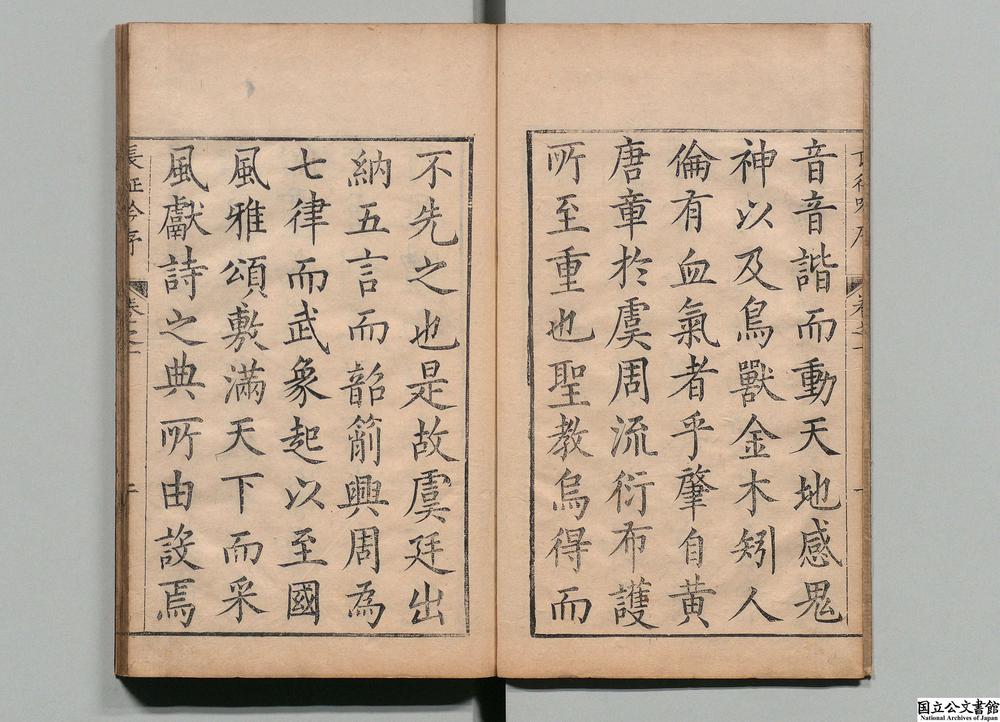 音音諧而動天地感鬼
神以及鳥獸金木矧人
倫有血氣者乎肇自黃
唐章於虞周流衍布護
所至重也聖教烏得而
不先之也是故虞廷出
納五言而韶箾興周為
七律而武象起以至國
風雅頌敷滿天下而采
風獻詩之典所由設焉
長征吟序
卷之一
国立公文書館
National Archives of Japan